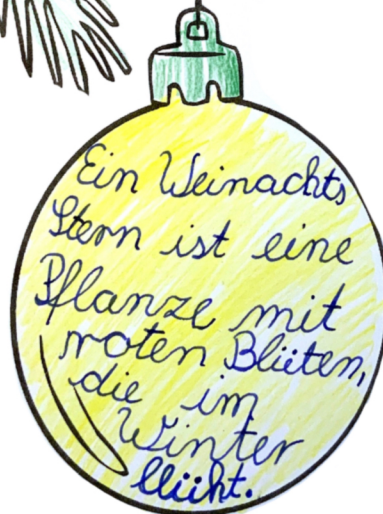 Ein Weinachts
Stern ist eine
Pflanze mit
roten Blüten,
die im
Winter
blüht.